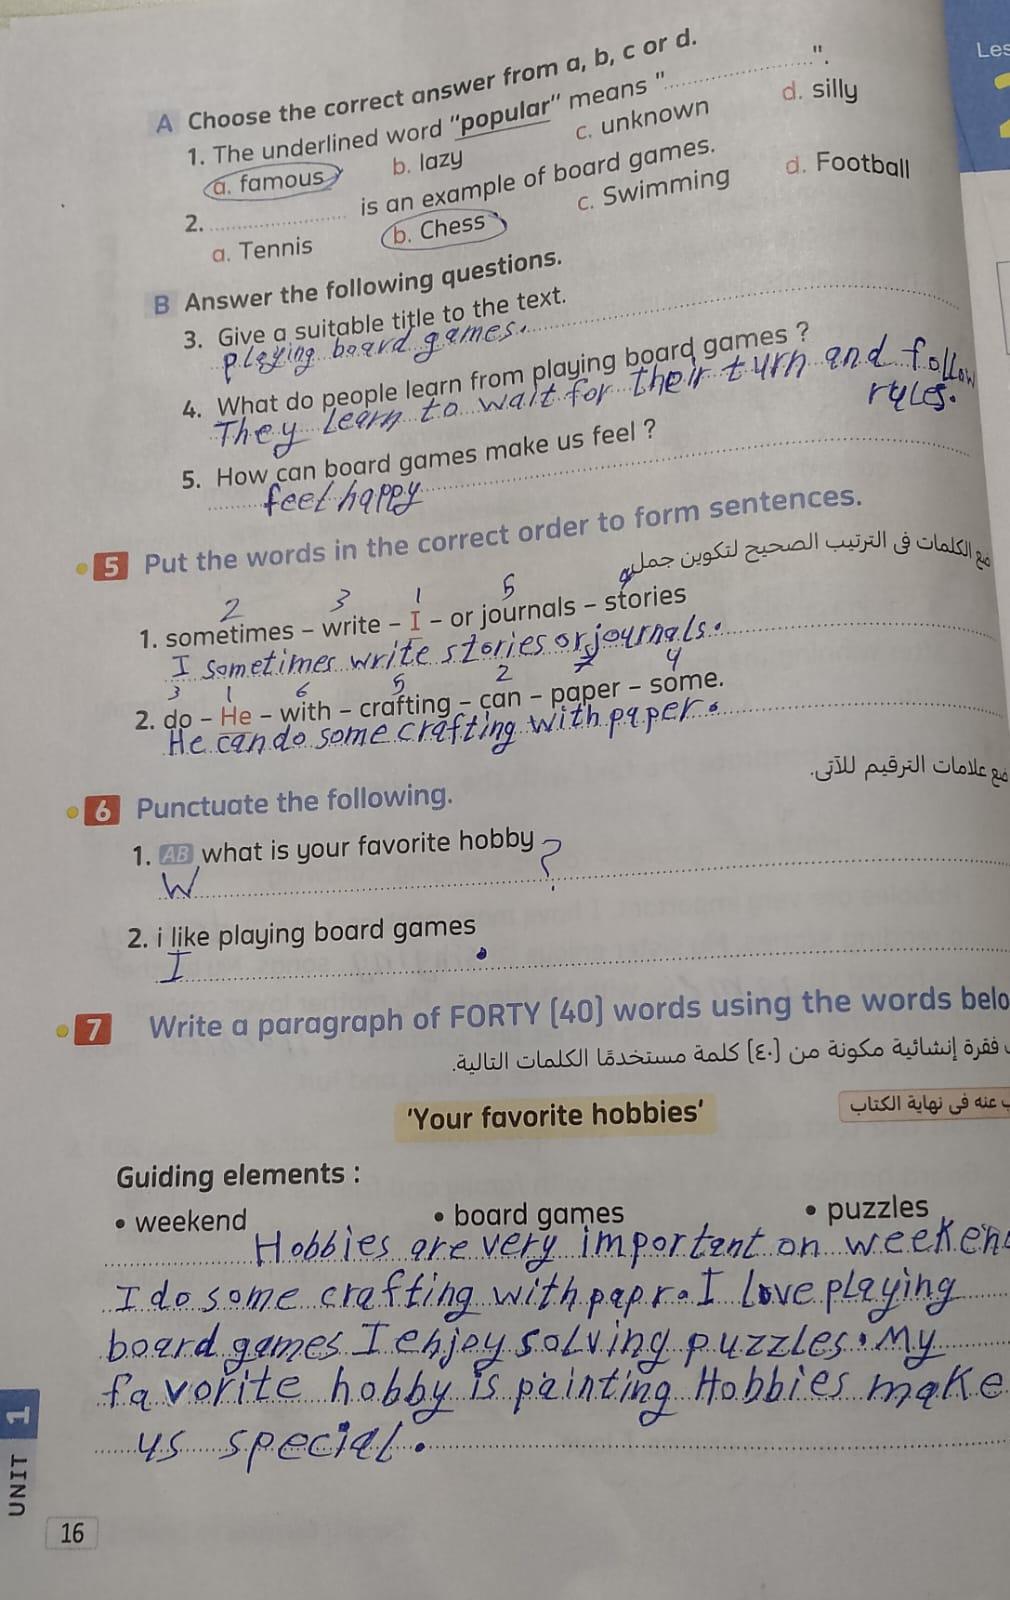 Les
A Choose the correct answer from a, b, c or d.
1. The underlined word "popular" means "..............".
a. famous b. lazy c. unknown d. silly
2. .............. is an example of board games.
a. Tennis b. Chess c. Swimming d. Football
B Answer the following questions.
3. Give a suitable title to the text.
playing board games.
4. What do people learn from playing board games ?
They learn to wait for their turn and follow
rules.
5. How can board games make us feel ?
feel happy
5 Put the words in the correct order to form sentences.
ضع الكلمات فى الترتيب الصحيح لتكوين جمل.
2 3 1 5 4
1. sometimes – write – I – or journals – stories
I sometimes write stories or journals.
3 1 6 5 2 7 4
2. do – He – with – crafting – can – paper – some.
He can do some crafting with paper.
6 Punctuate the following.
ضع علامات الترقيم للآتى.
1. AB what is your favorite hobby
W ?
2. i like playing board games
I .
7 Write a paragraph of FORTY (40) words using the words belo
فقرة إنشائية مكونة من (٤٠) كلمة مستخدمًا الكلمات التالية.
'Your favorite hobbies'
عنه فى نهاية الكتاب
Guiding elements :
• weekend • board games • puzzles
Hobbies are very important on weeken
I do some crafting with papr. I love playing
board games I enjoy solving puzzles. My
favorite hobby is painting Hobbies make
us special.
UNIT 1
16